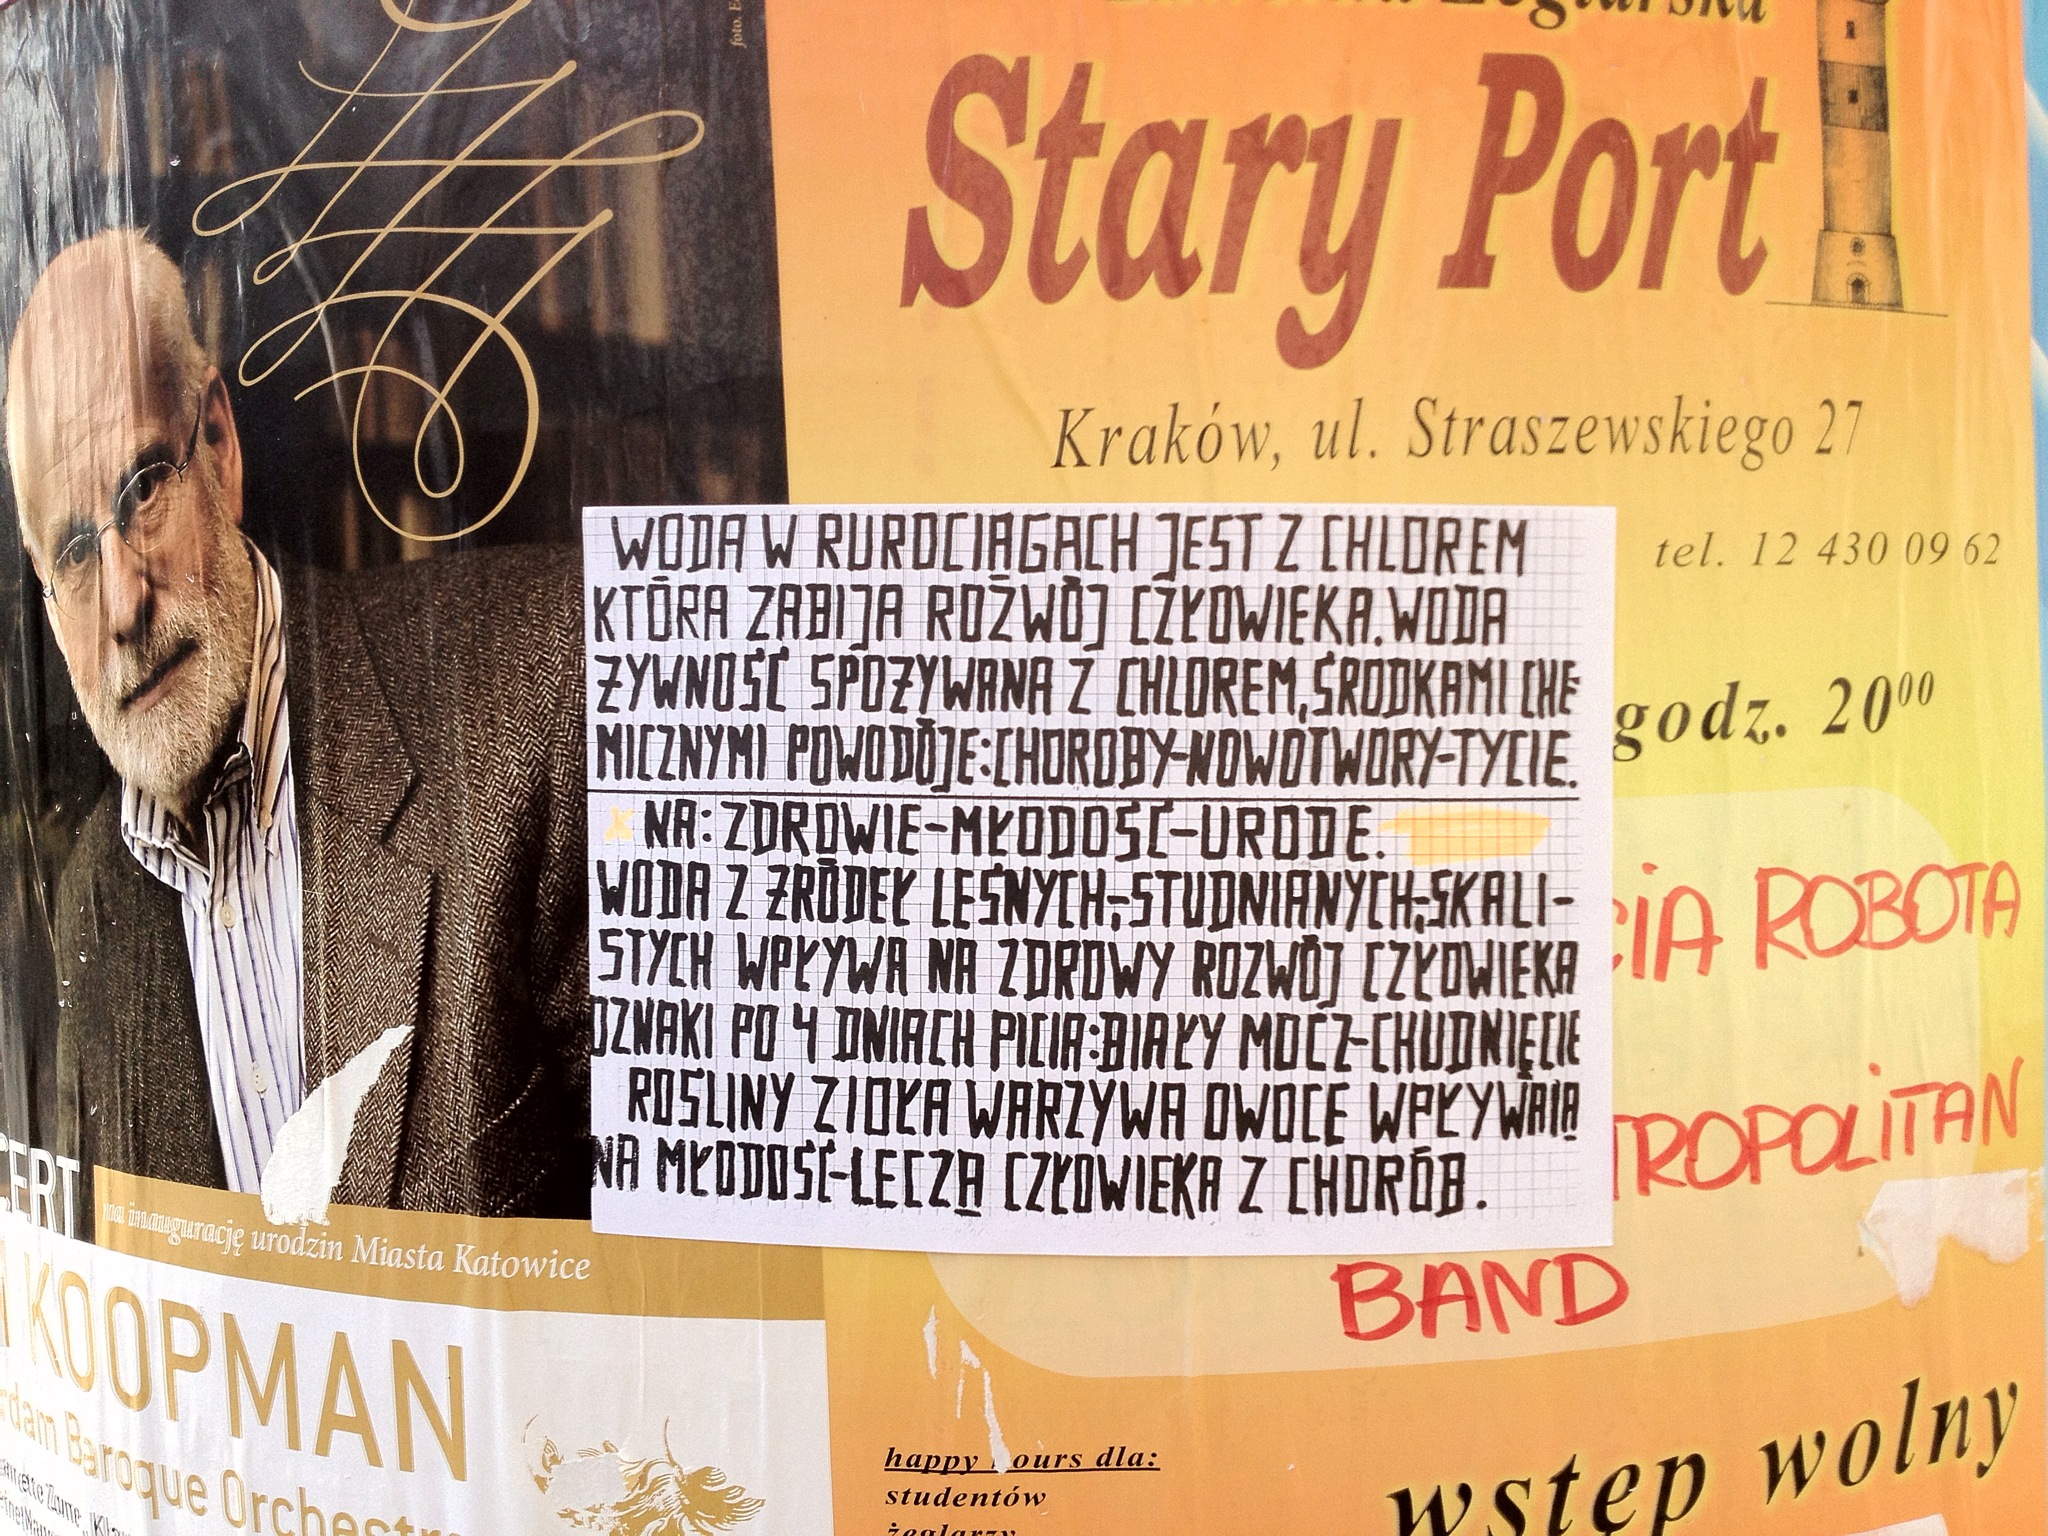 foto.
Stary Port
Kraków, ul. Straszewskiego 27
tel. 12 430 09 62
godz. 20⁰⁰
WODA W RUROCIĄGACH JEST Z CHLOREM
KTÓRA ZABIJA ROŻWÓJ CZŁOWIEKA. WODA
ŻYWNOŚĆ SPOŻYWANA Z CHLOREM, ŚRODKAMI CHE
MICZNYMI POWODÓJE: CHOROBY-NOWOTWORY-TYCIE.
x NA: ZDROWIE-MŁODOŚĆ-URODE.
WODA Z ŹRÓDEŁ LEŚNYCH,-STUDNIANYCH,-SKALI-
STYCH WPŁYWA NA ZDROWY ROZWÓJ CZŁOWIEKA
OZNAKI PO 4 DNIACH PICIA: BIAŁY MOCZ-CHUDNIĘCIE
ROŚLINY ZIOŁA WARZYWA OWOCE WPŁYWAIĄ
NA MŁODOŚĆ-LECZĄ CZŁOWIEKA Z CHORÓB.
ROBOTA
BAND
na inaugurację urodzin Miasta Katowice
KOOPMAN
Baroque Orchestra
happy hours dla:
studentów
żeglarzy
wstęp wolny